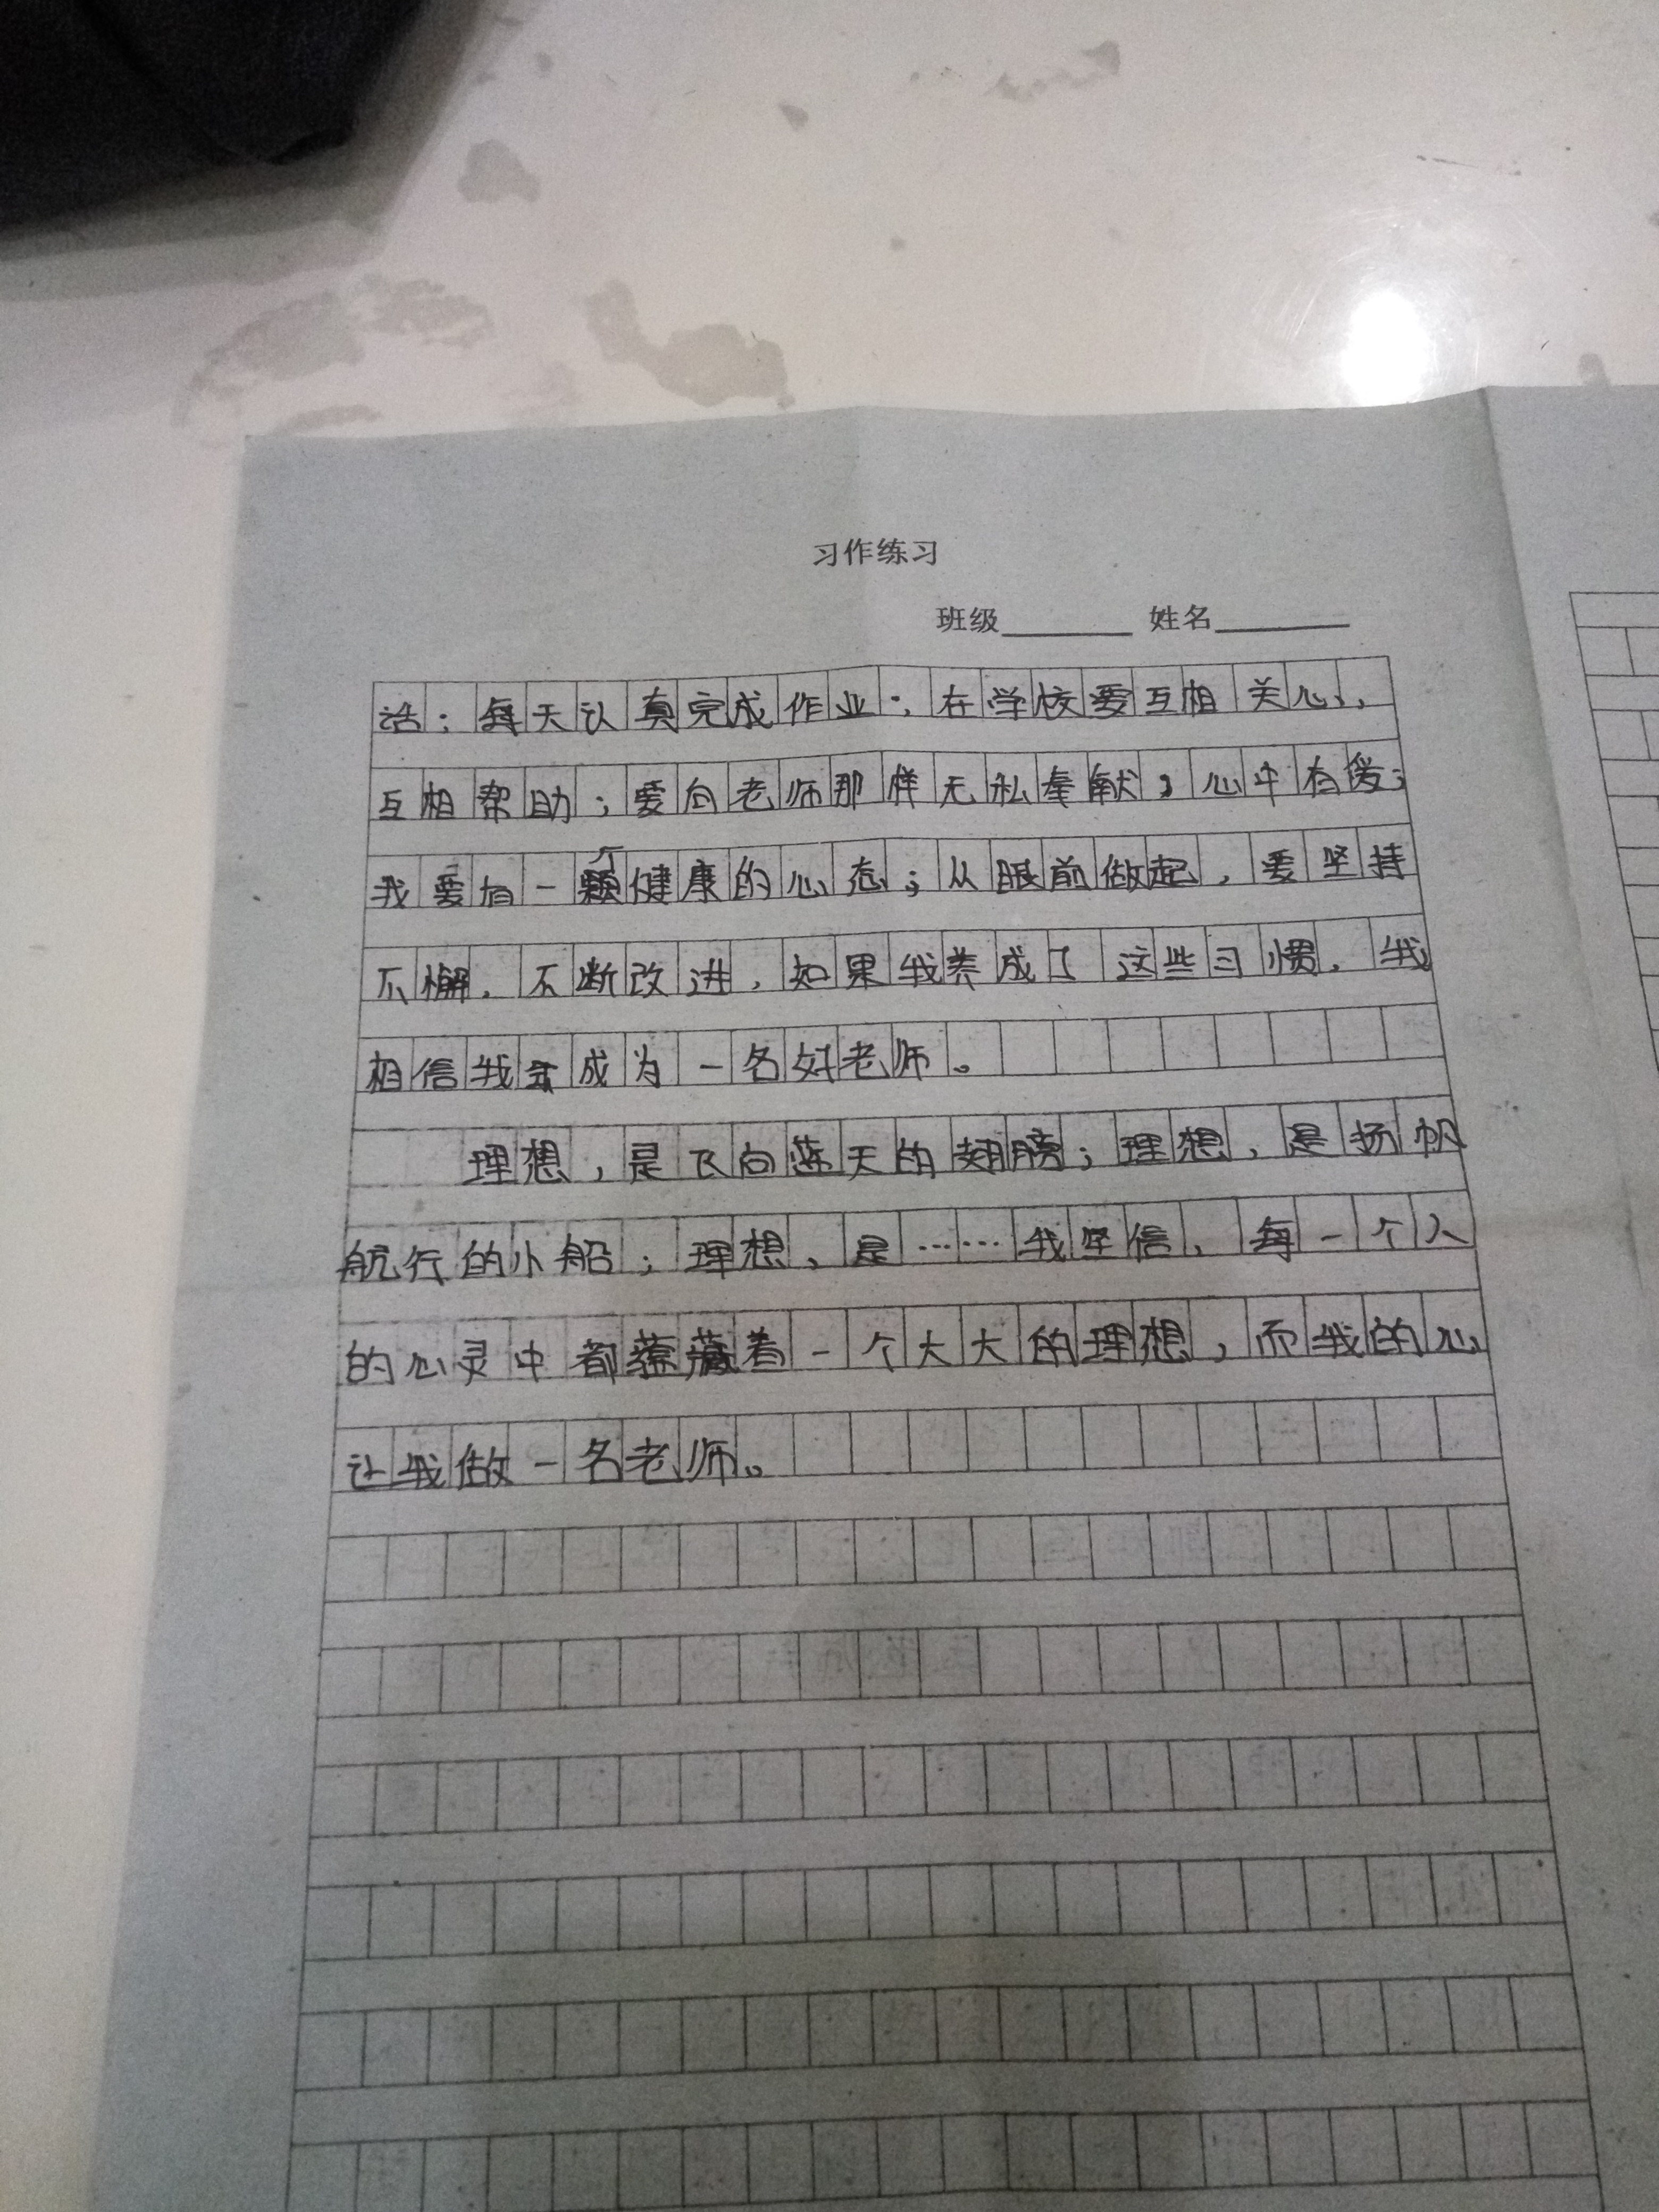 习作练习
班级 姓名
话；每天认真完成作业；在学校要互相关心，
互相帮助；要向老师那样无私奉献；心中有爱；
我要有一颗健康的心态；从眼前做起，要坚持
不懈，不断改进，如果我养成了这些习惯，我
相信我会成为一名好老师。
理想，是飞向蓝天的翅膀；理想，是扬帆
航行的小船；理想，是……我坚信，每一个人
的心灵中都蕴藏着一个大大的理想，而我的心
让我做一名老师。